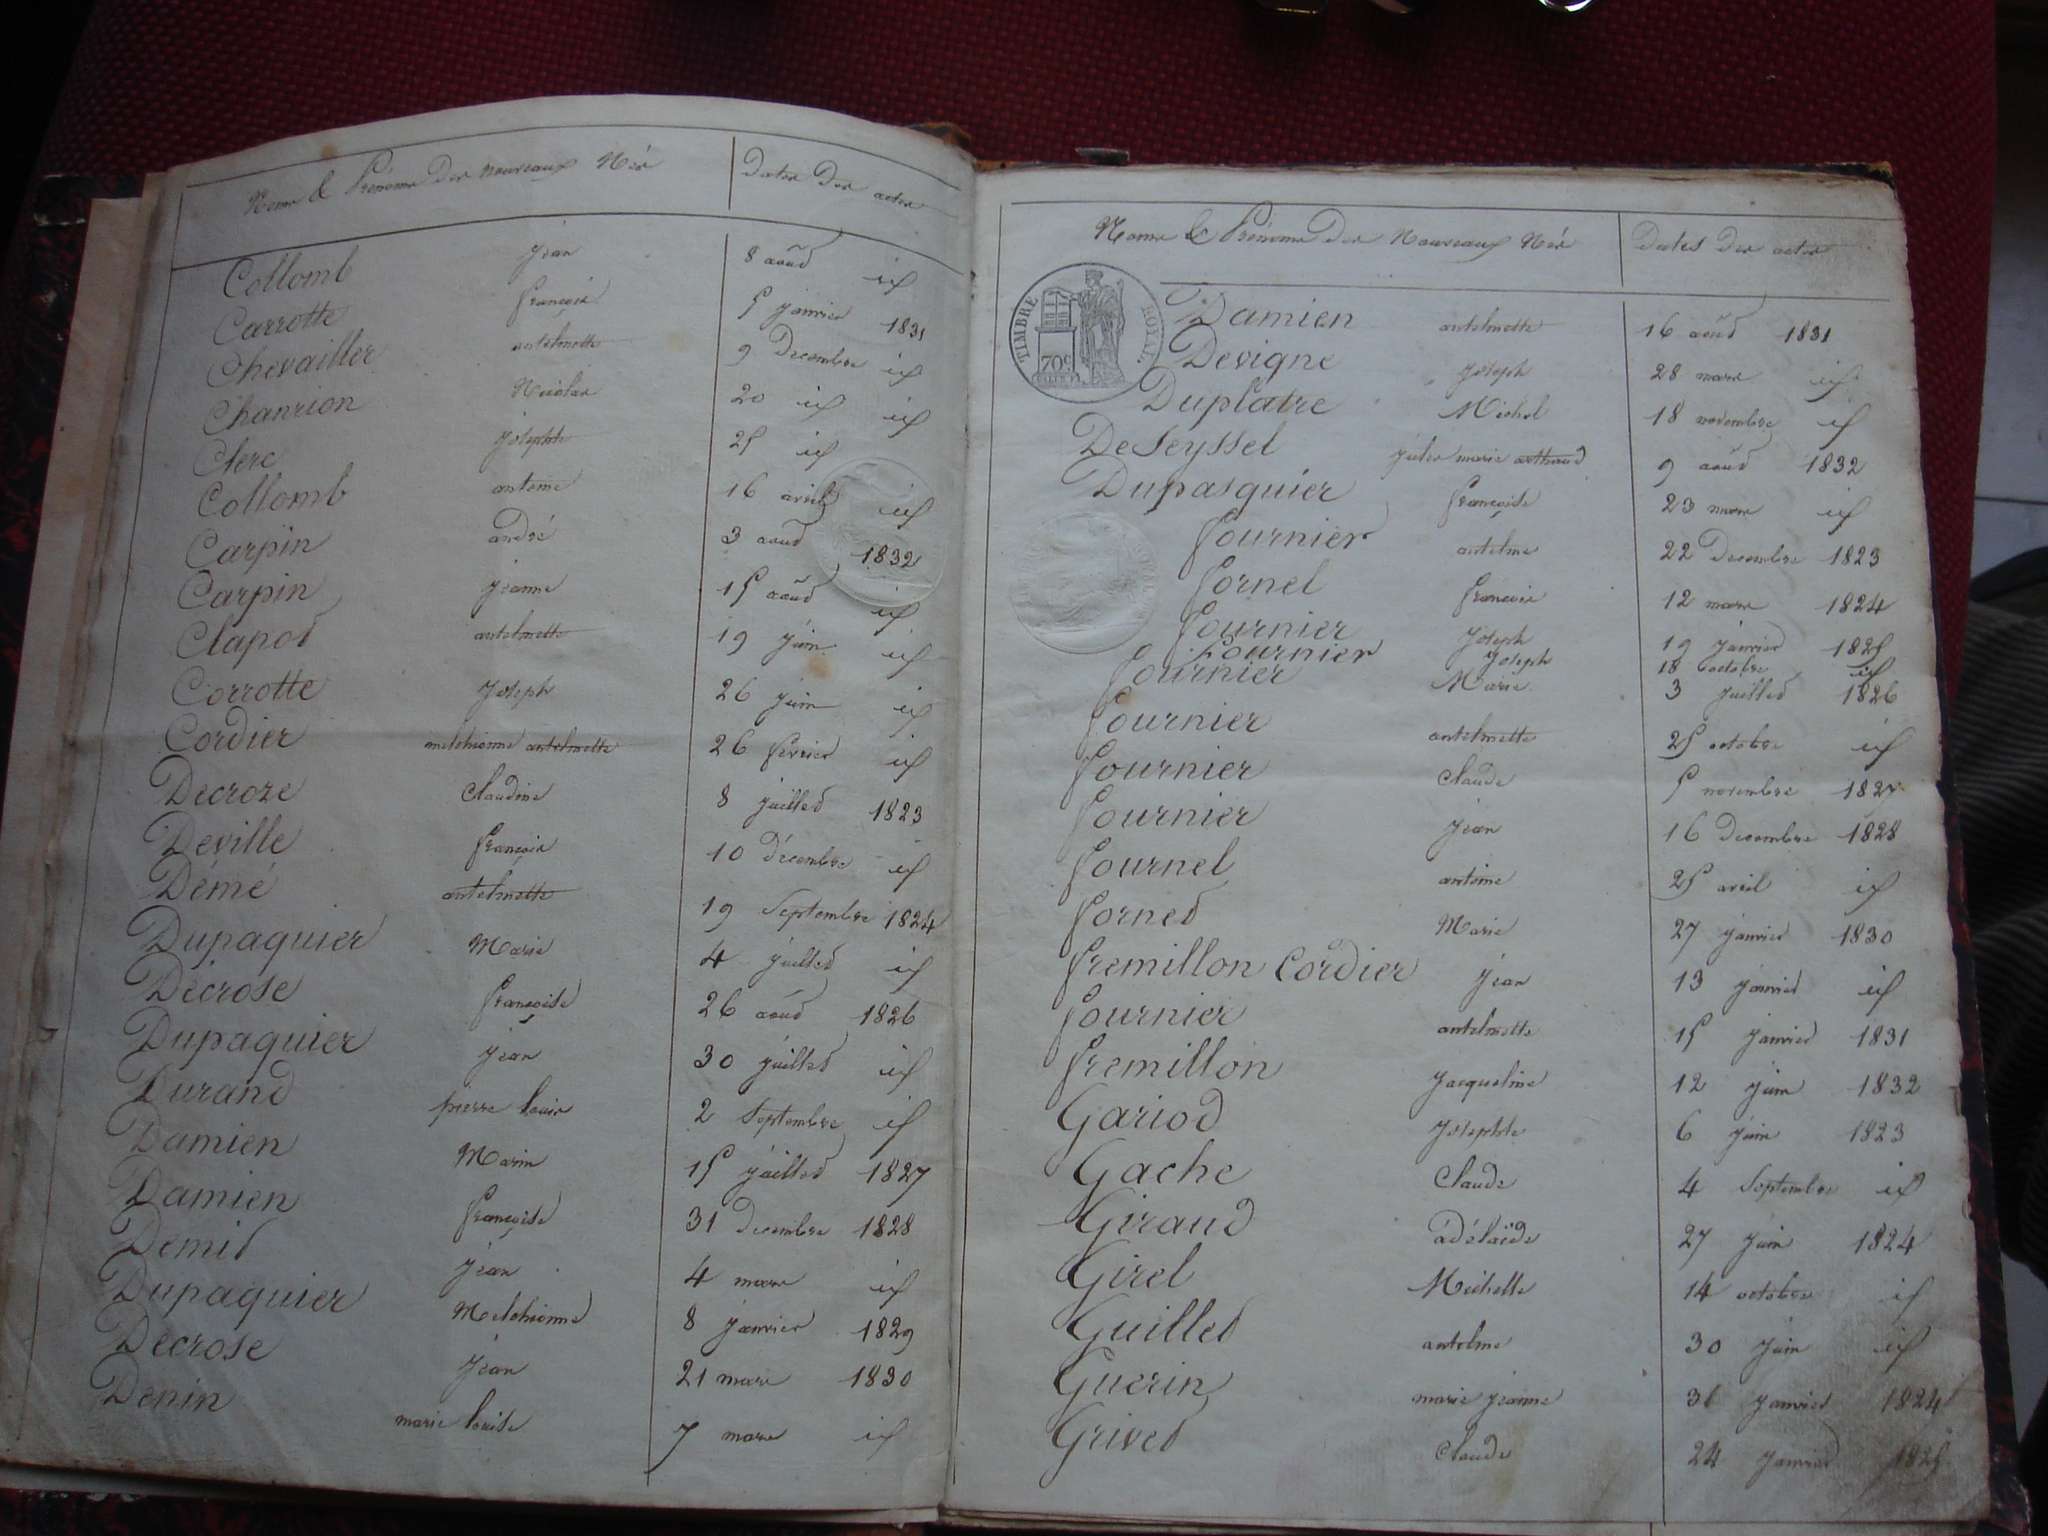 Noms & Prénoms Des nouveaux Nés Dates Des actes
Collomb jean 8 aoud id
Carrotte françois 5 janvier 1831
Chevailler antelmette 9 Decembre id
Chanrion Nicolas 20 id id
Clerc josephte 25 id
Collomb antoine 16 avril id
Carpin andré 3 aoud 1832
Carpin jeanne 15 aoud id
Clapod antelmette 19 juin id
Corrotte joseph 26 juin id
Cordier melchionne antelmette 26 fevrier id
Decroze Claudine 8 juilled 1823
Deville françois 10 décembre id
Démé antelmette 19 Septembre 1824
Dupaquier Marie 4 juilled id
Décrose françoise 26 aoud 1826
Dupaquier jean 30 juilled id
Durand pierre louis 2 Septembre id
Damien Marin 15 juilled 1827
Damien françoise 31 decembre 1828
Demid jean 4 mars id
Dupaquier Melchionne 8 janvier 1829
Decrose jean 21 mars 1830
Denin marie louise 7 mars id
Noms & Prénoms Des Nouveaux Nés Dates Des actes
TIMBRE ROYAL
70c
Damien antelmette 16 aoud 1831
Devigne joseph 28 mars id
Duplatre Michel 18 novembre id
DeSeyssel jules marie arthaud 9 aoud 1832
Dupasquier françoise 23 mars id
fournier antelme 22 Decembre 1823
fornel françois 12 mars 1824
fournier joseph 19 janvier 1825
fournier joseph 18 octobre id
fournier Marie 3 juilled 1826
fournier antelmette 25 octobre id
fournier claude 5 novembre 1827
fournier jean 16 Decembre 1828
fournel antoine 25 avril id
forned Marie 27 janvier 1830
fremillon Cordier jean 13 janvier id
fournier antelmette 15 janvier 1831
fremillon jacqueline 12 juin 1832
Gariod josephte 6 juin 1823
Gache Claude 4 Septembre id
Giraud adélaïde 27 juin 1824
Girel Michelle 14 octobre id
Guilled antelme 30 juin id
Guerin marie jeanne 31 janvier 1824
Grived Claude 24 janvier 1825